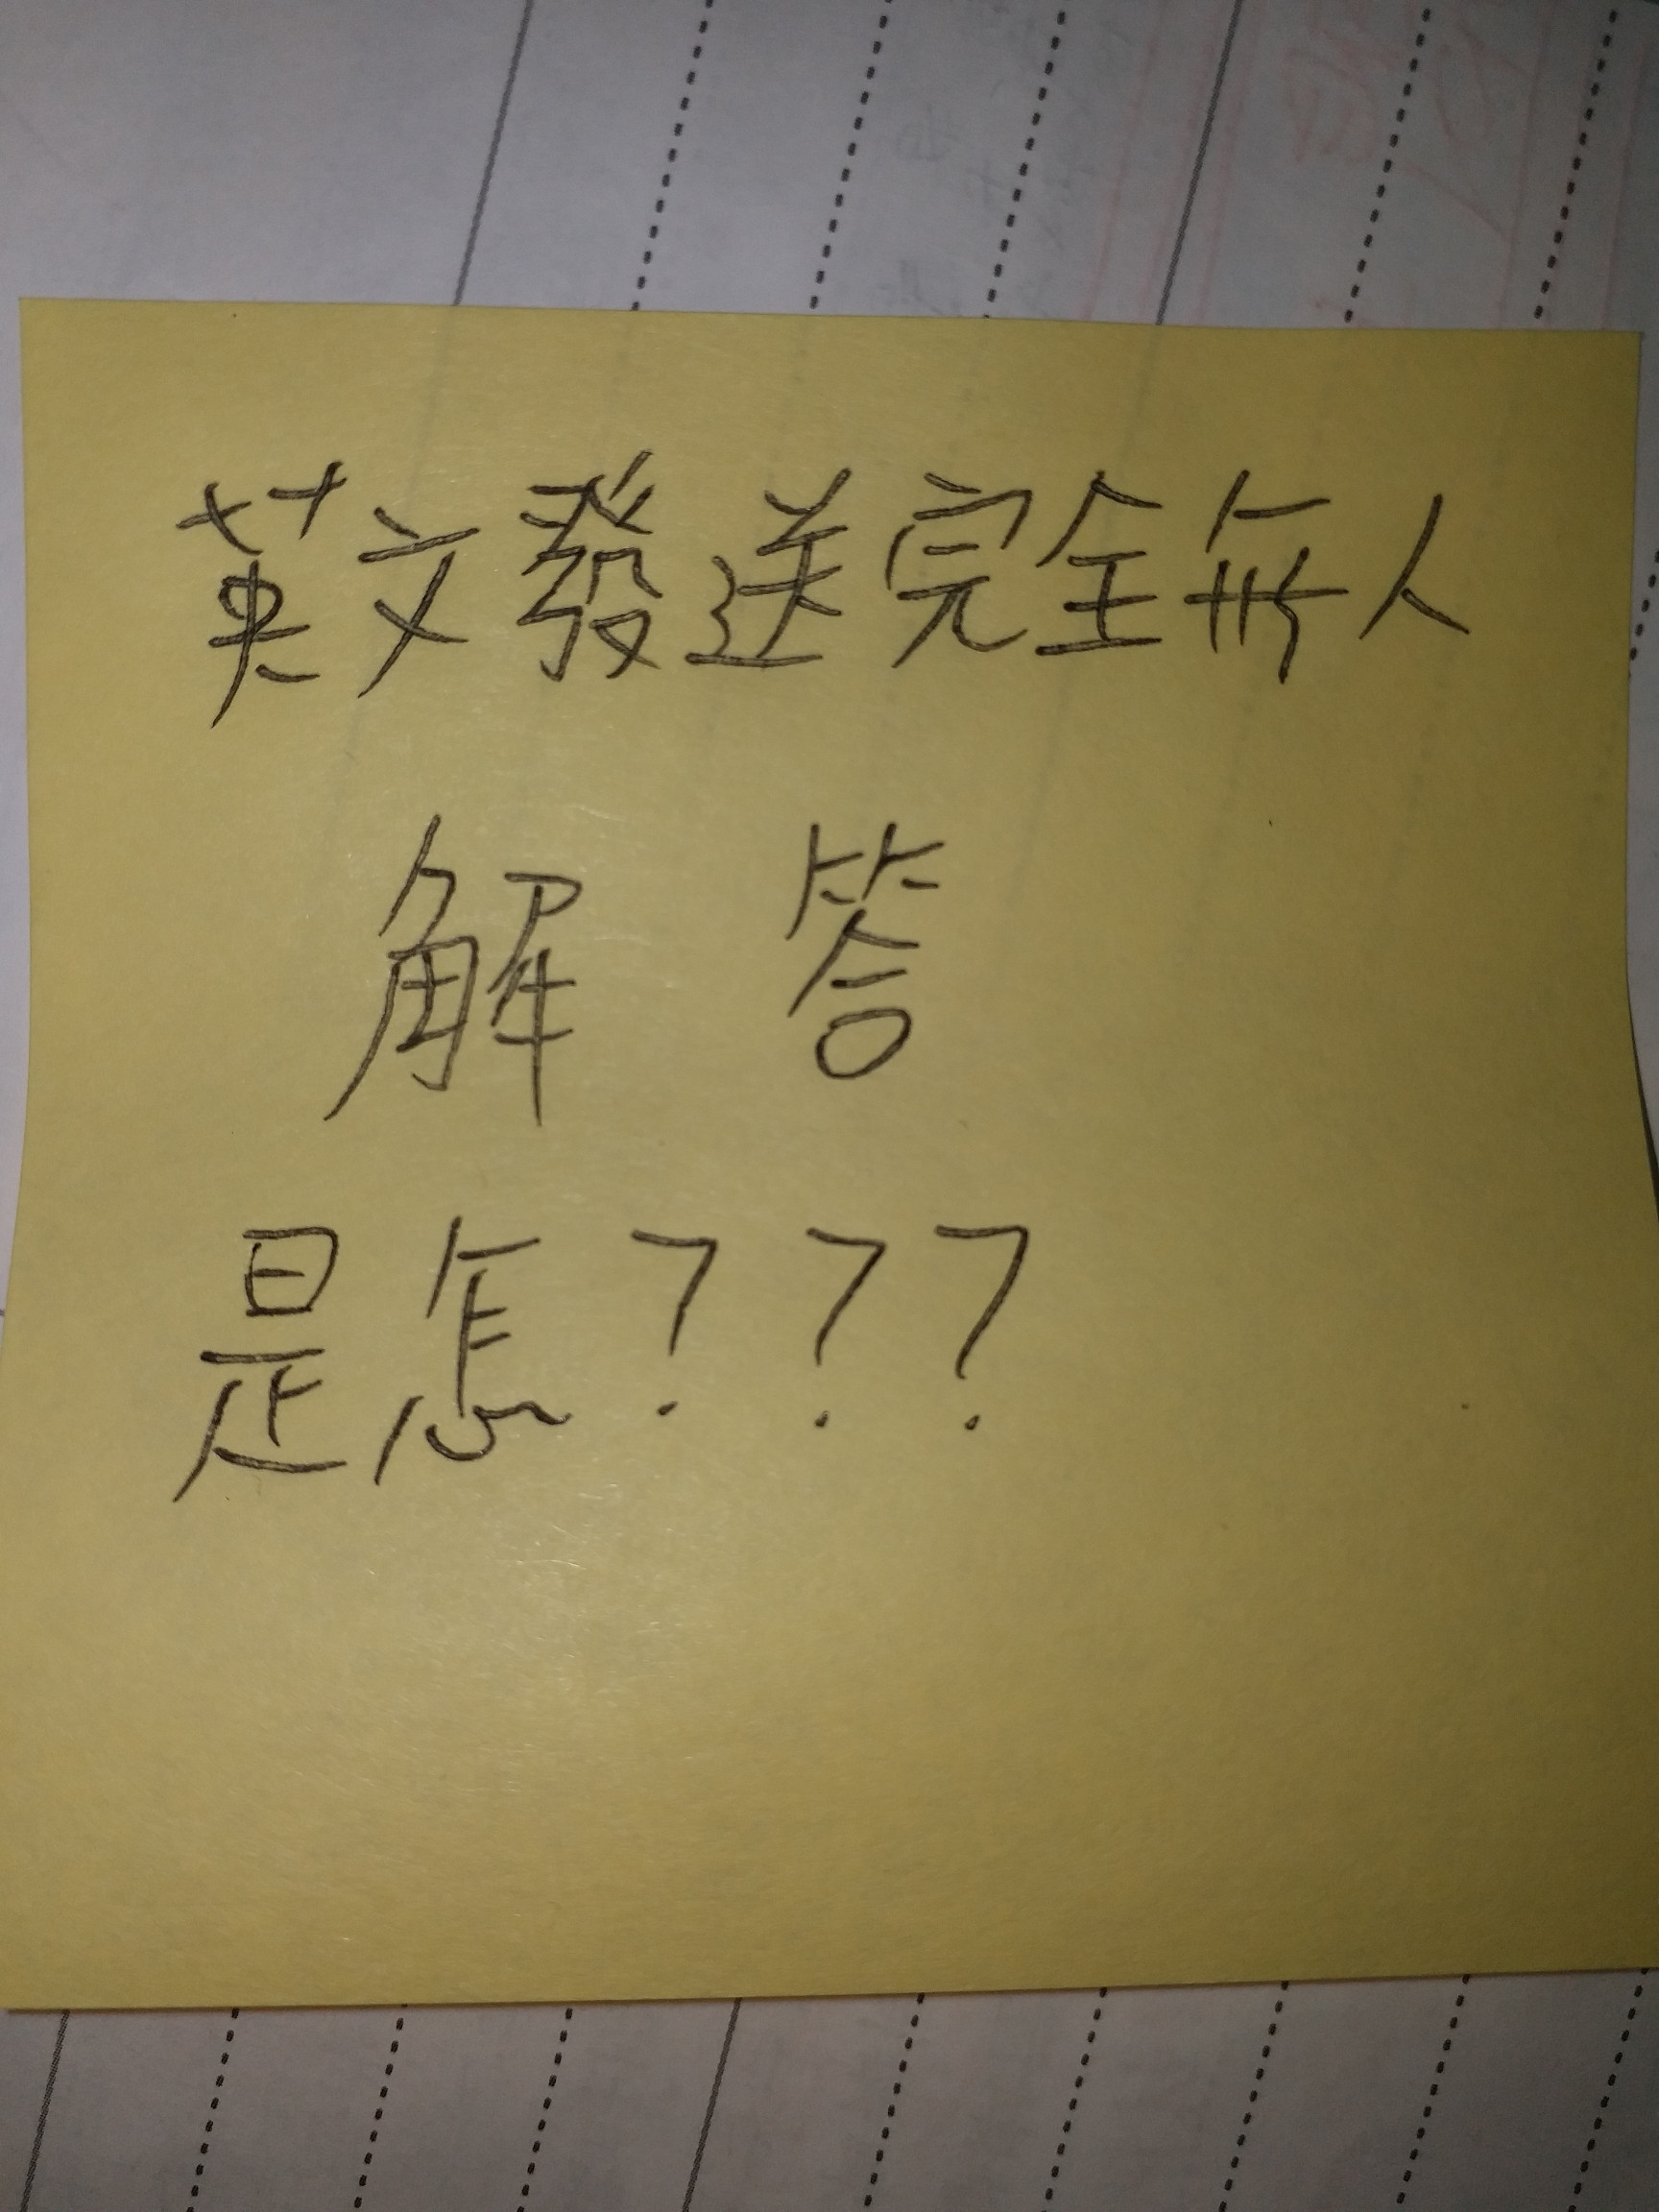 英文發送完全無人
解答
是怎???